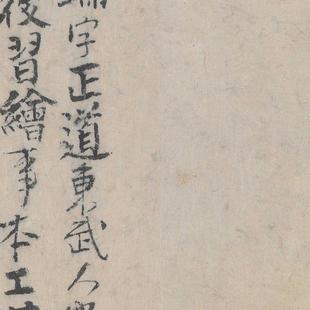 端字正道東武人
後習繪事本工